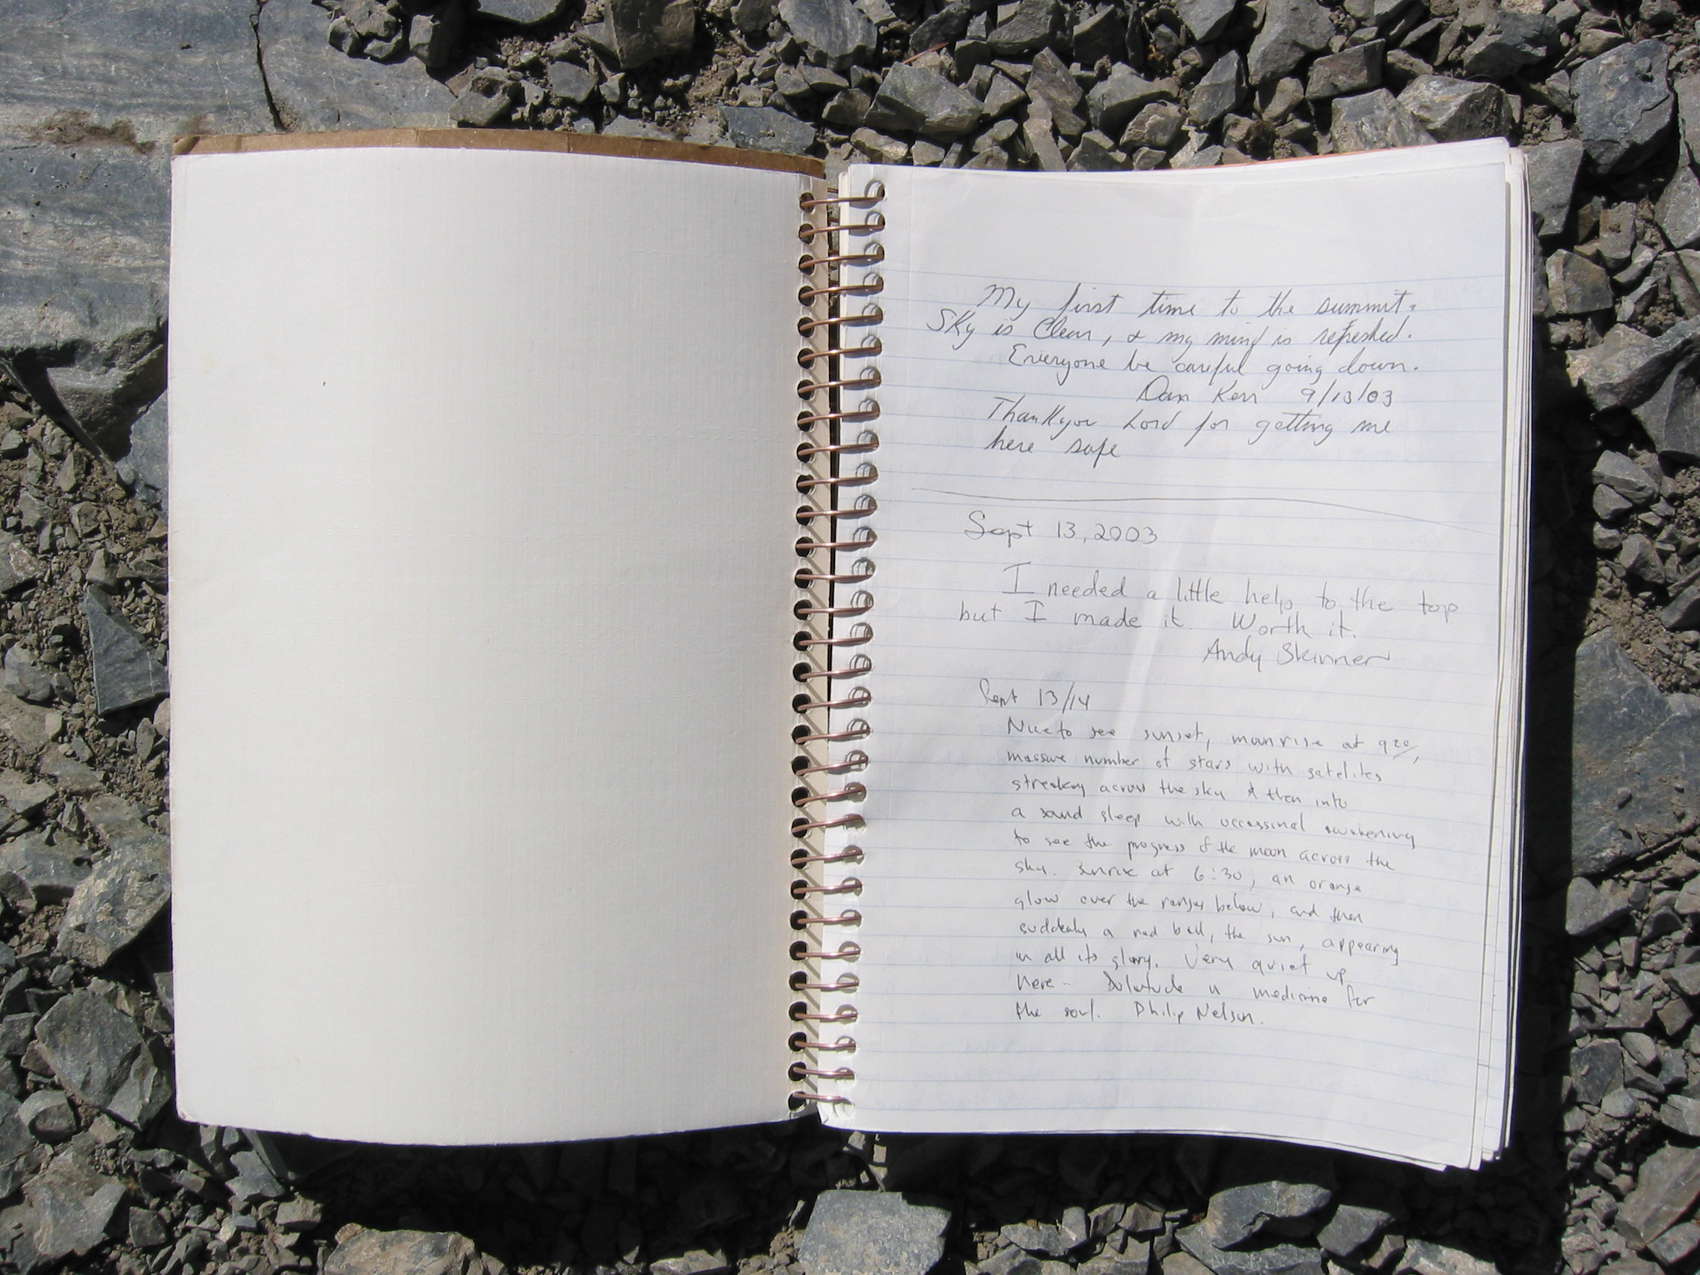 My first time to the summit.
Sky is Clear, & my mind is refreshed.
Everyone be careful going down.
Dan Kerr 9/13/03
Thankyou Lord for getting me
here safe
Sept 13, 2003
I needed a little help to the top
but I made it. Worth it.
Andy Skinner
Sept 13/14
Nice to see sunset, moonrise at 920,
massive number of stars with satelites
streaking across the sky & then into
a sound sleep with occassinal awakening
to see the progress of the moon across the
sky. Sunrise at 6:30, an orange
glow over the ranges below, and then
suddenly a red ball, the sun, appearing
in all its glory. Very quiet up
here - Solatude is medicine for
the soul. Philip Nelson.